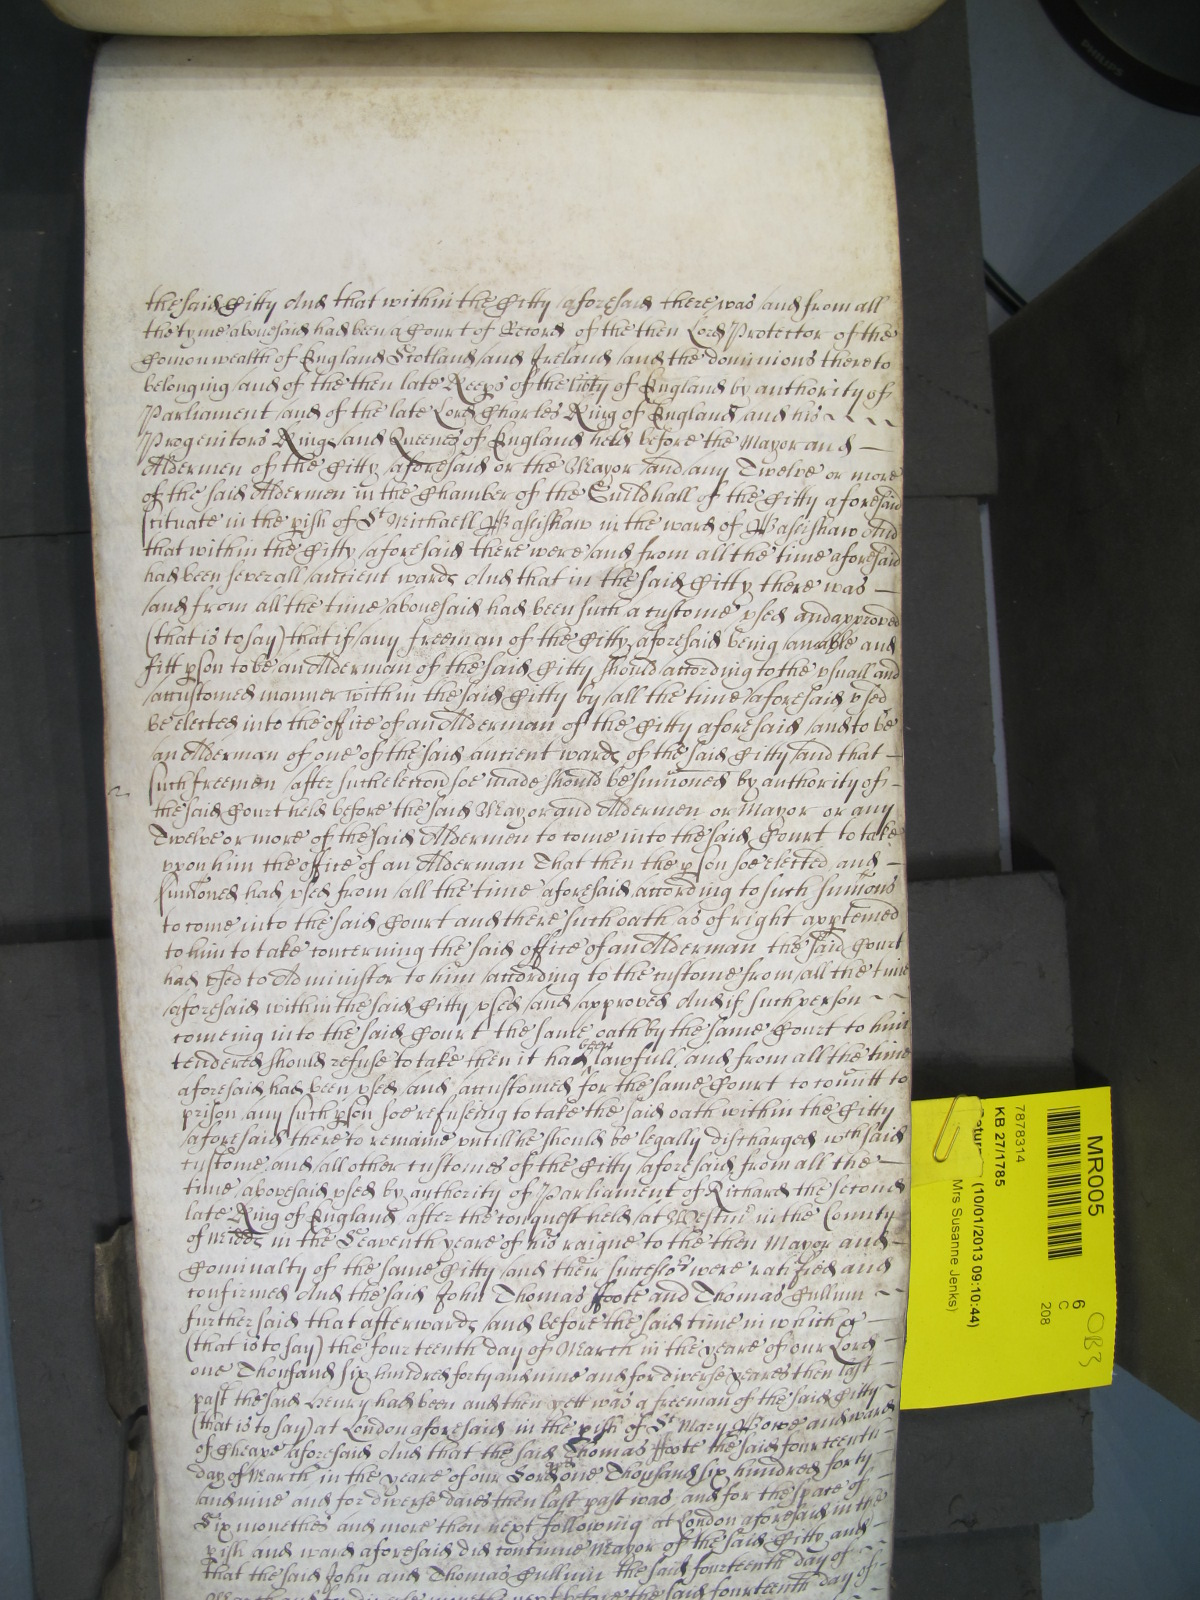 the said Citty And that within the Citty aforesaid there was and from all
the tyme abouesaid had been a Court of Record of the then Lord Protector of the
Comonwealth of England Scotland and Ireland and the dominions thereto
belonging and of the then late Keeps of the litty of England by authority of
Parliament and of the late Lord Charles King of England and his
Progenitors Kings and Queenes of England held before the Mayor and
Aldermen of the Citty aforesaid or the Mayor and any Twelve or more
of the said Aldermen in the Chamber of the Guildhall of the Citty aforesaid
scituate in the pish of St Michaell Bassishaw in the ward of Bassishaw And
that within the Citty aforesaid there were and from all the time aforesaid
had been severall ancient wards And that in the said Citty there was
and from all the time abouesaid had been such a custome vsed and approved
(that is to say) that if any freeman of the Citty aforesaid being an able and
fitt pson to be an Alderman of the said Citty should according to the vsuall and
accustomed manner within the said Citty by all the time aforesaid vsed
be elected into the office of an Alderman of the Citty aforesaid and to be
an Alderman of one of the said ancient wards of the said Citty and that
such freemen after such eleccon soe made should be sumoned by authority of
the said Court held before the said Mayor and Aldermen or Mayor or any
Twelve or more of the said Aldermen to come into the said Court to take
vpon him the office of an Alderman That then the pson soe elected and
sumoned had vsed from all the time aforesaid according to such sumons
to come into the said Court and there such oath as of right apptemed
to him to take concerning the said office of an Alderman the said Court
had vsed to Administer to him according to the custome from all the time
aforesaid within the said Citty vsed and approved And if such person
comeing into the said Court the same oath by the same Court to him
tendered should refuse to take then it had been lawfull and from all the time
aforesaid had been vsed and accustomed for the same Court to comitt to
prison any such pson soe refuseing to take the said oath within the Citty
aforesaid there to remaine vntill he should be legally discharged wch said
custome and all other customes of the Citty aforesaid from all the
time abovesaid vsed by authority of Parliament of Richard the second
late King of England after the conquest held at Westm in the County
of Midds in the Seaventh yeare of his raigne to the then Mayor and
Cominalty of the same Citty and their successors were ratified and
confirmed And the said John Thomas ffoote and Thomas Cullum
further said that afterwards and before the said time in which &
(that is to say) the fourteenth day of March in the yeare of our Lord
one Thousand six hundred forty and nine and for diverse yeares then last
past the said Henry had been and then yett was a freeman of the said Citty
(that is to say) at London aforesaid in the pish of St Mary Bowe and ward
of Cheape aforesaid And that the said Thomas ffoote the said fourteenth
day of March in the yeare of our Lord one Thousand six hundred forty
and nine and for diverse daies then last past was and for the space of
Six monethes and more then next following at London aforesaid in the
pish and ward aforesaid did continue Mayor of the said Citty and
that the said John and Thomas Cullum the said fourteenth day of
PHILIPS
MR005
6
C
208
OB3
7878314
KB 27/1785
(10/01/2013 09:10:44)
Mrs Susanne Jenks)